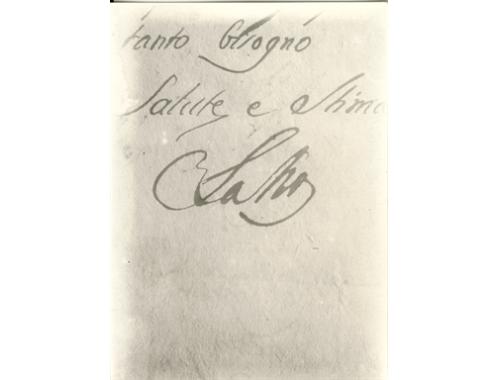 tanto bisogno
Salute e Stima